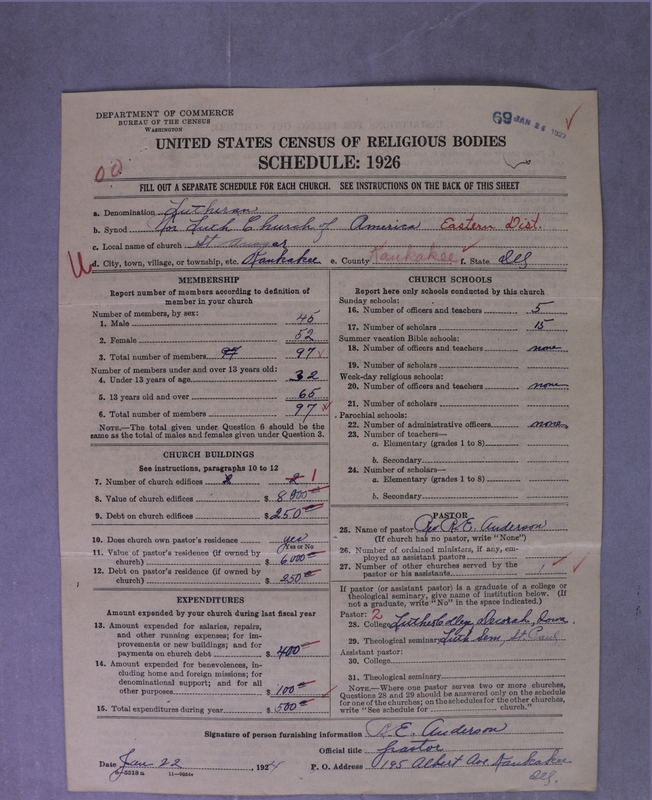 DEPARTMENT OF COMMERCE
BUREAU OF THE CENSUS
WASHINGTON
69 JAN 26 1927
UNITED STATES CENSUS OF RELIGIOUS BODIES
SCHEDULE: 1926
FILL OUT A SEPARATE SCHEDULE FOR EACH CHURCH. SEE INSTRUCTIONS ON THE BACK OF THIS SHEET
a. Denomination Lutheran
b. Synod Nor Luth Church of America Eastern Dist.
c. Local name of church St
d. City, town, village, or township, etc. Kankakee e. County Kankakee f. State Ill
MEMBERSHIP
Report number of members according to definition of
member in your church
Number of members, by sex:
1. Male 45
2. Female 52
3. Total number of members 97 97
Number of members under and over 13 years old:
4. Under 13 years of age 32
5. 13 years old and over 65
6. Total number of members 97
NOTE.—The total given under Question 6 should be the
same as the total of males and females given under Question 3.
CHURCH BUILDINGS
See instructions, paragraphs 10 to 12
7. Number of church edifices 2 2 1
8. Value of church edifices $ 8000
9. Debt on church edifices $ 250
10. Does church own pastor's residence yes
Yes or No
11. Value of pastor's residence (if owned by
church) $ 6000
12. Debt on pastor's residence (if owned by
church) $ 250
EXPENDITURES
Amount expended by your church during last fiscal year
13. Amount expended for salaries, repairs,
and other running expenses; for im-
provements or new buildings; and for
payments on church debt $ 400
14. Amount expended for benevolences, in-
cluding home and foreign missions; for
denominational support; and for all
other purposes $ 100
15. Total expenditures during year $ 500
CHURCH SCHOOLS
Report here only schools conducted by this church
Sunday schools:
16. Number of officers and teachers 5
17. Number of scholars 15
Summer vacation Bible schools:
18. Number of officers and teachers none
19. Number of scholars
Week-day religious schools:
20. Number of officers and teachers none
21. Number of scholars
Parochial schools:
22. Number of administrative officers none
23. Number of teachers—
a. Elementary (grades 1 to 8)
b. Secondary
24. Number of scholars—
a. Elementary (grades 1 to 8)
b. Secondary
PASTOR
25. Name of pastor R. E. Anderson
(If church has no pastor, write "None")
26. Number of ordained ministers, if any, em-
ployed as assistant pastors
27. Number of other churches served by the
pastor or his assistants 1
If pastor (or assistant pastor) is a graduate of a college or
theological seminary, give name of institution below. (If
not a graduate, write "No" in the space indicated.)
Pastor: 2
28. College Luther College Decorah, Iowa.
29. Theological seminary Luth Sem, St Paul
Assistant pastor:
30. College
31. Theological seminary
NOTE.—Where one pastor serves two or more churches,
Questions 28 and 29 should be answered only on the schedule
for one of the churches; on the schedules for the other churches,
write "See schedule for church."
Signature of person furnishing information R. E. Anderson
Official title pastor
Date Jan 22, 192
P. O. Address 195 Albert Ave Kankakee
Ill.